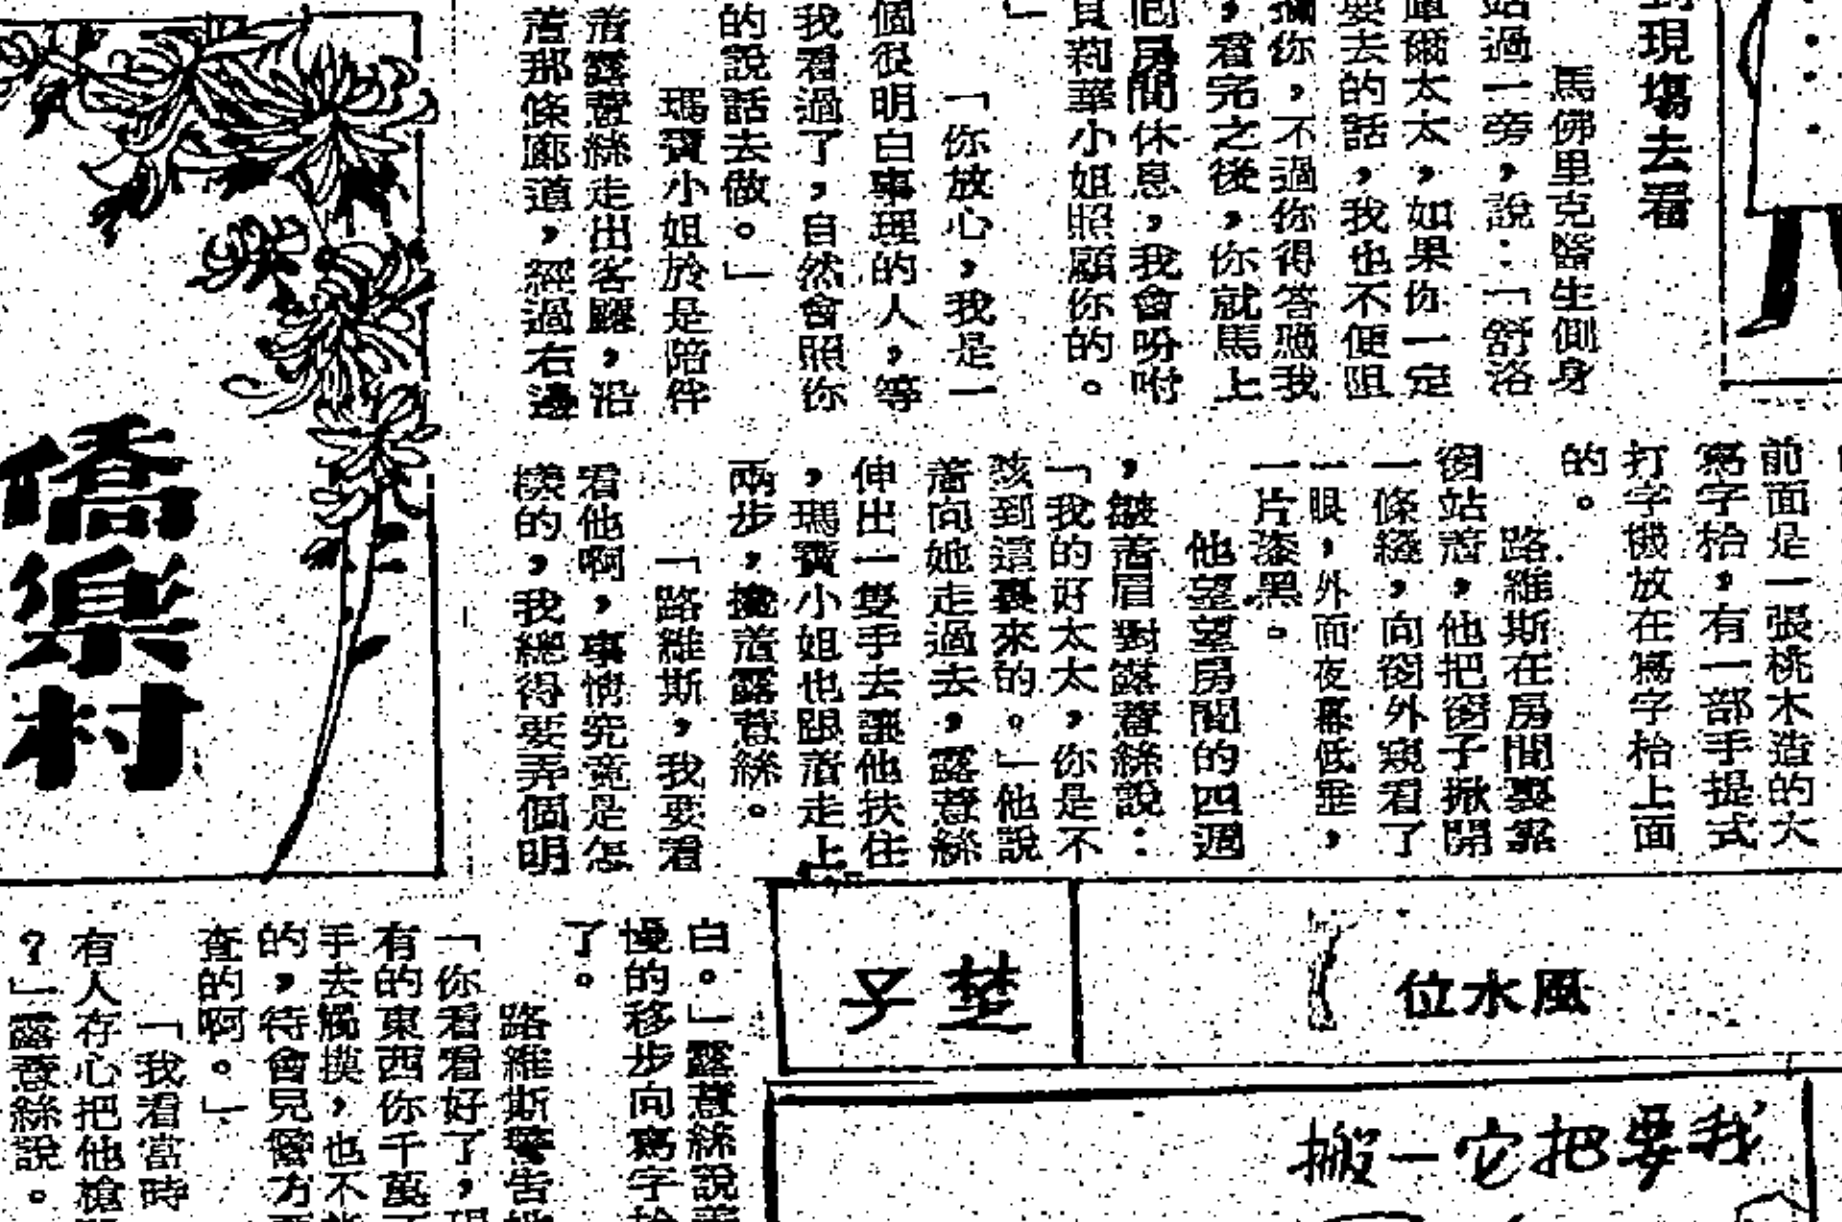 到現場去看
馬佛里克醫生側身
站過一旁，說：「舒洛
爾太太，如果你一定
要去的話，我也不便阻
攔你，不過你得答應我
，看完之後，你就馬上
回房間休息，我會吩咐
莉華小姐照顧你的。
」
「你放心，我是一
個很明白事理的人，等
我看過了，自然會照你
的說話去做。」
瑪寶小姐於是陪伴
着露薏絲走出客廳，沿
着那條廊道，經過右邊
前面是一張桃木造的大
寫字枱，有一部手提式
打字機放在寫字枱上面
的。
路維斯在房間裏靠
窗站着，他把窗子揪開
一條縫，向窗外窺看了
一眼，外面夜幕低垂，
一片漆黑。
他望望房間的四週
，皺着眉對露薏絲說：
「我的好太太，你是不
該到這裏來的。」他說
着向她走過去，露薏絲
伸出一雙手去讓他扶住
，瑪寶小姐也跟着走上
兩步，攙着露薏絲。
「路維斯，我要看
看他啊，事情究竟是怎
樣的，我總得要弄個明
僑樂村
白。」露薏絲說着
慢的移步向寫字枱
了。
路維斯警告她
「你看看好了，現
有的東西你千萬不
手去觸摸，也不能
的，待會兒警方要
查的啊。」
「我看當時
有人存心把他槍
？」露薏絲說。
風水位
楚子
我要把它一搬